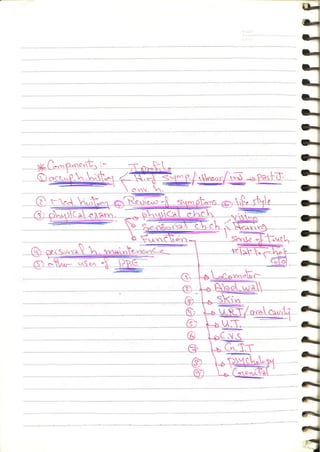 * Components :-
① occup. h history → J profile
→ H. of symp / illness / inj → past J.
→ env. h
② Med history ⊕ Review of symptoms ⊕ life style
③ physical exam. → physical chch
→ Sensorial chch → Vision
→ Hearing
→ sense of touch
→ Function
④ personal h maintenance
⑤ other uses of PPE
① → Locomotor
② → Abd. wall
③ → Skin
→ U.R.T / oral cavity
⑤ → U.T.
⑥ → C.V.S
→ G.I.T
⑧ → Psychology
⑨ → Genital